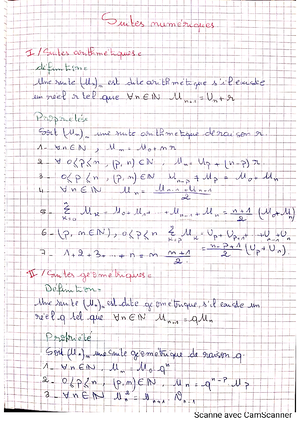 Suites numériques
I / Suites arithmétiques :
définition :
Une suite (Un)n est dite arithmétique s'il existe
un réel r tel que ∀n∈ℕ Un+1 = Un + r
Propriétés
Soit (Un)n une suite arithmétique de raison r.
1- ∀n∈ℕ, Un = U0 + nr
2- ∀ 0≤p≤n, (p,n)∈ℕ, Un = Up + (n-p) r
3- 0≤p≤n, (p,n)∈ℕ Un-p + Up = U0 + Un
4- ∀n∈ℕ Un = Un-1 + Un+1 / 2
5- Σ Uk = U0 + U1 + Un-1 + Un = n+1 / 2 (U0 + Un)
6- (p,n∈ℕ), 0≤p≤n Σ Uk = Up + Up+1 + Un-1 + Un
= n-p+1 / 2 (Up + Un)
7- 1+2+3... + n = n n+1 / 2
II / Suites géométriques :
Definition :
Une suite (Un)n est dite géométrique, s'il existe un
réel q tel que ∀n∈ℕ Un+1 = q Un
Propriété
Soit (Un)n une suite géométrique de raison q
1- ∀n∈ℕ, Un = U0 qⁿ
2- 0≤p≤n, (p,n)∈ℕ Un = qⁿ⁻ᵖ Up
3- ∀n∈ℕ Un² = Un+1 . Un-1
Scanné avec CamScanner